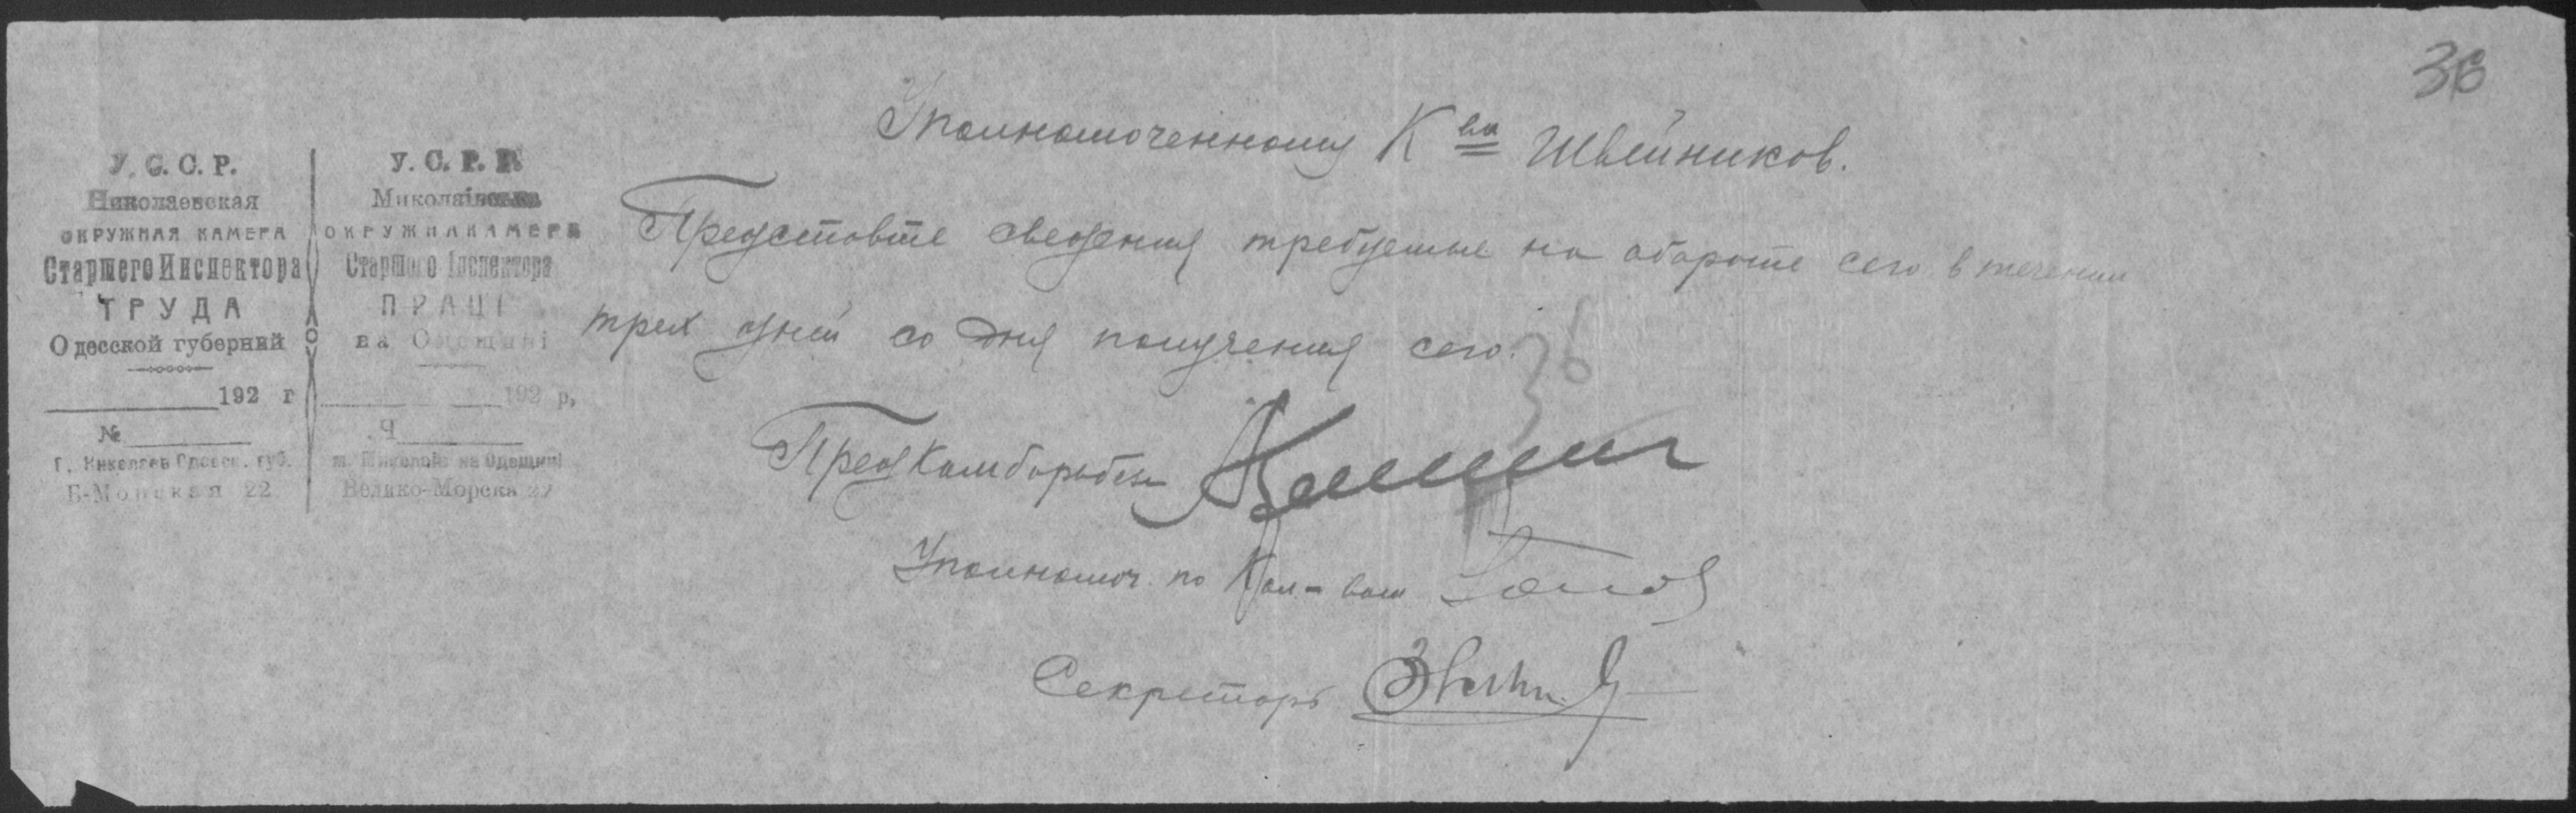 36
У. С. С. Р.
Николаевская
ОКРУЖНАЯ КАМЕРА
Старшего Инспектора
ТРУДА
Одесской губерний
192 г
№
Г. Николаев Одесск. губ.
Б-Морская 22
У. С. Р. Р.
Миколаївська
ОКРУЖНА КАМЕРА
Старшого Інспектора
ПРАЦІ
на Одещині
192 р.
Ч
м. Миколаїв на Одещині
Велико-Морска 22
Уполномоченному К ва Швейников.
Предстовте сведения требуемые на обароте сего в течении
трех дней со дня получения сего.
36
Пред Камборьбези
Уполномоч. по Кол-вам
Секреторь